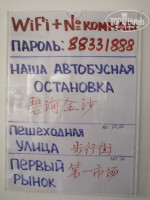 WiFi + № комнаты
ПАРОЛЬ: 88331888
НАША АВТОБУСНАЯ
ОСТАНОВКА
碧河金沙
ПЕШЕХОДНАЯ
УЛИЦА 步行街
ПЕРВЫЙ
РЫНОК 第一市场